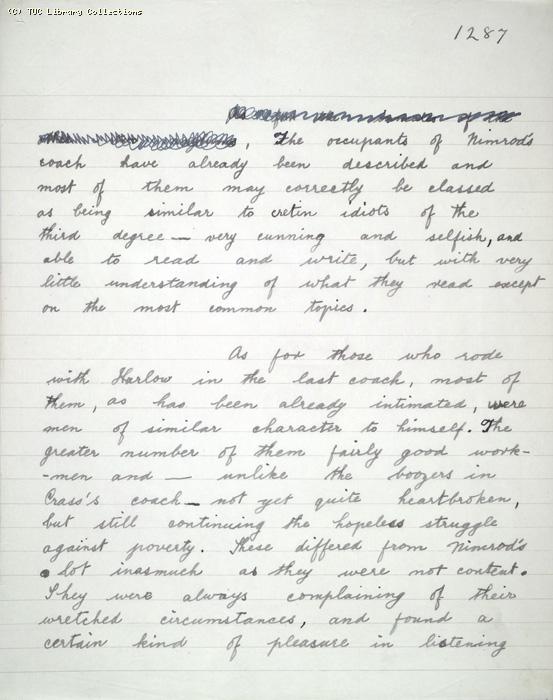 (C) TUC Library Collections
1287
The occupants of Nimrod's
coach have already been described and
most of them may correctly be classed
as being similar to cretin idiots of the
third degree — very cunning and selfish, and
able to read and write, but with very
little understanding of what they read except
on the most common topics.
As for those who rode
with Harlow in the last coach, most of
them, as has been already intimated, were
men of similar character to himself. The
greater number of them fairly good work-
-men and — unlike the boozers in
Crass's coach — not yet quite heartbroken,
but still continuing the hopeless struggle
against poverty. These differed from Nimrod's
lot inasmuch as they were not content.
They were always complaining of their
wretched circumstances, and found a
certain kind of pleasure in listening